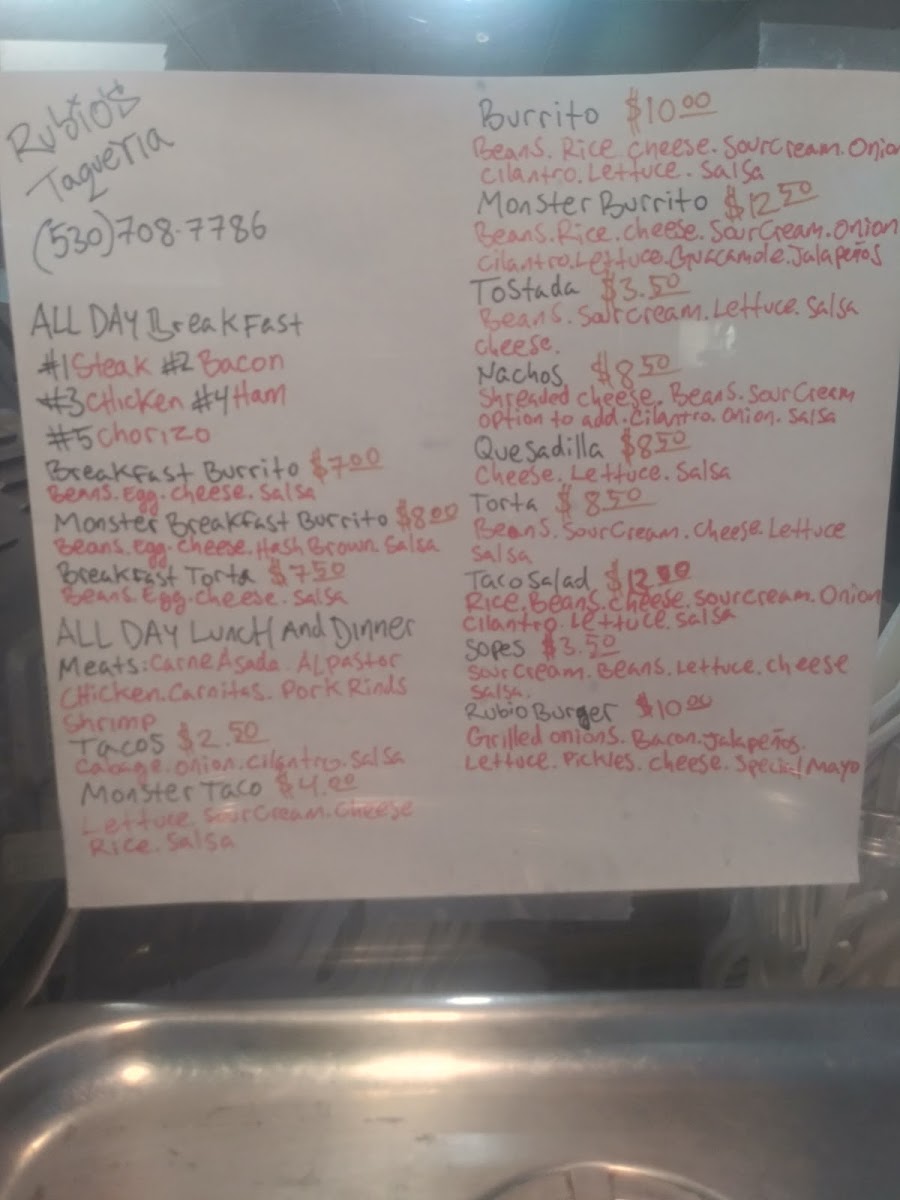 Rubio's
Taqueria
(530)708-7786
ALL DAY BreakFast
#1 Steak #2 Bacon
#3 CHicken #4 Ham
#5 Chorizo
BreakFast Burrito $7.00
Beans. Egg. Cheese. Salsa
Monster BreakFast Burrito $8.00
Beans. Egg. Cheese. Hash Brown. Salsa
BreakFast Torta $7.50
Beans. Egg. Cheese. Salsa
ALL DAY LuncH And Dinner
Meats: Carne Asada. Al Pastor
CHicken. Carnitas. Pork Rinds
Shrimp
Tacos $2.50
Cabage. onion. Cilantro. Salsa
Monster Taco $4.00
Lettuce. Sour Cream. Cheese
Rice. Salsa
Burrito $10.00
Beans. Rice cheese. Sour Cream. Onion
Cilantro. Lettuce. Salsa
Monster Burrito $12.50
Beans. Rice. Cheese. Sour Cream. Onion
Cilantro. Lettuce. Guacamole. Jalapeños
Tostada $3.50
Beans. Sour Cream. Lettuce. Salsa
Cheese.
Nachos $8.50
Shreaded cheese. Beans. Sour Cream
option to add. Cilantro. onion. Salsa
Quesadilla $8.50
Cheese. Lettuce. Salsa
Torta $8.50
Beans. Sour Cream. Cheese. Lettuce
Salsa
Taco Salad $12.00
Rice. Beans. Cheese. Sour Cream. Onion
Cilantro. Lettuce Salsa
Sopes $3.50
Sour Cream. Beans. Lettuce. Cheese
Salsa.
Rubio Burger $10.00
Grilled onions. Bacon. Jalapeños.
Lettuce. Pickles. Cheese. Special Mayo